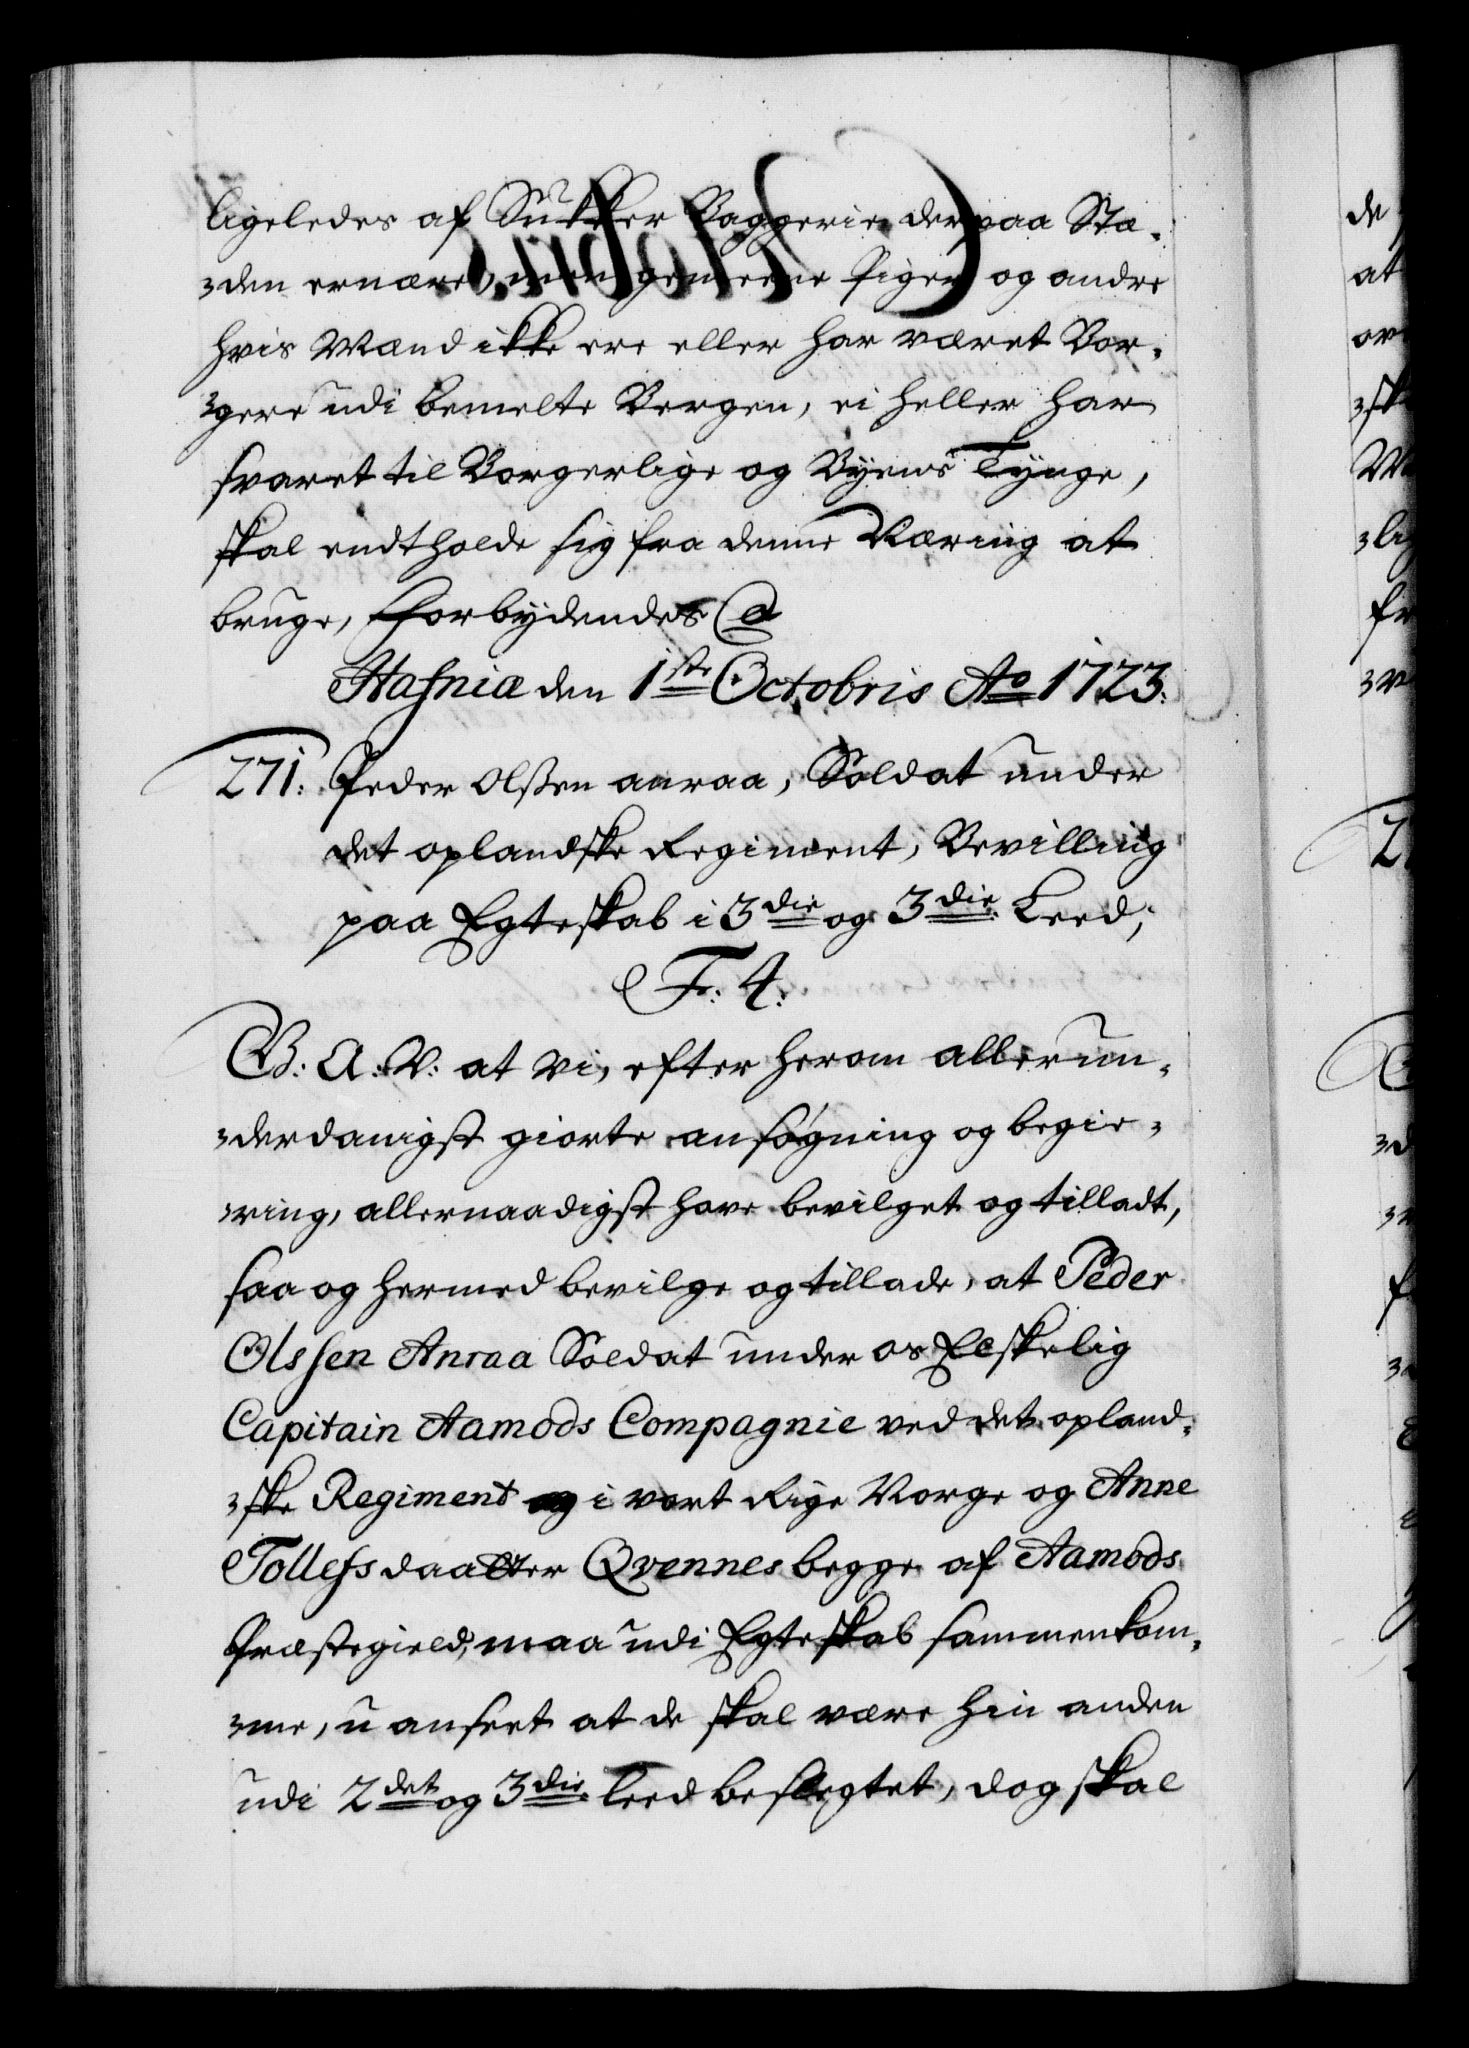 ligeledes af Sukker Baggerie der paa Stæ-
den ernære, men gemeene Piger og andre
hvis Mænd ikke ere eller har været Bor-
gere udi bemelte Bergen, ei heller har
svaret til Borgerlige og Byens Tynge,
skal endtholde sig fra denne Næring at
bruge, Forbydendes &
Hafniæ den 1ste Octobris Ao 1723.
271. Peder Olssen anraa, Soldat under
det oplandske Regiment, Bevilling
paa Egteskab i 3die og 3die Leed;
F: 4:
G: A: V: at vi, efter herom allerun-
derdanigst giorte ansøgning og begie-
ring, allernaadigst have bevilget og tilladt,
saa og hermed bevilge og tillade, at Peder
Olssen Anraa Soldat under os Elskelig
Capitain Aamods Compagnie ved det opland-
ske Regiment i vort Rige Norge og Anne
Tollefsdaatter Qvennes begge af Aamods
Præstegield, maa udi Egteskab sammenkom-
me, uanseet at de skal være hin anden
udi 2det og 3die Leed beslegtet, dog skal